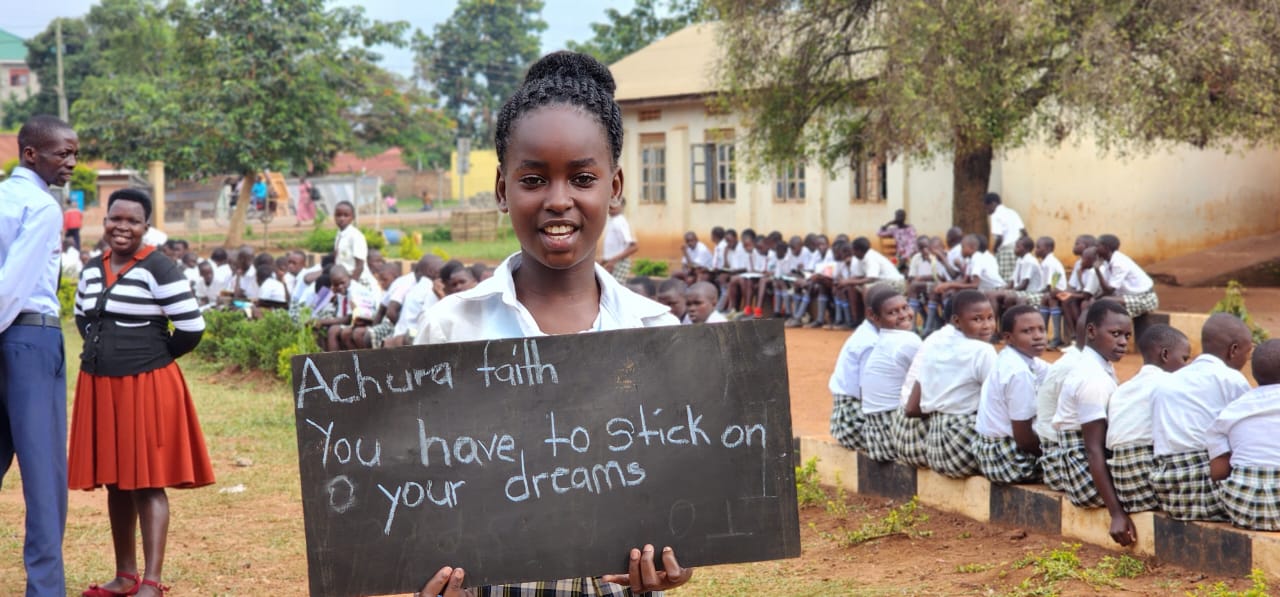 Achura faith
You have to stick on
your dreams